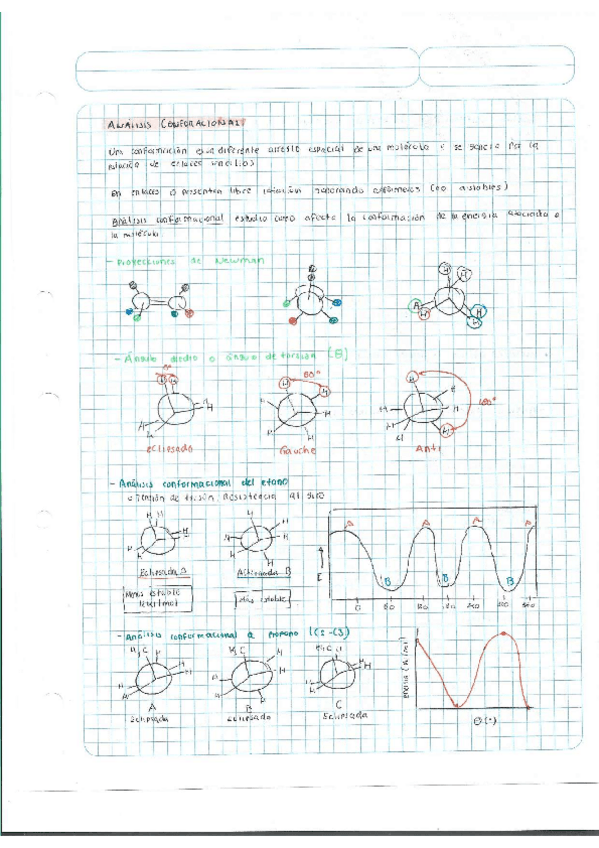 ANÁLISIS CONFORMACIONAL
Una conformación es un diferente arreglo espacial de una molécula y se genera por la
rotación de enlaces sencillos
En enlaces σ presentan libre rotación generando confórmeros (no aislables)
Análisis conformacional estudio como afecta la conformación de la energía asociada a
la molécula
- Proyecciones de Newman
H H
A H H H H
- Ángulo diedro o ángulo de torsión (θ)
0° 60° 180°
H H H H H
eclipsado Gauche Anti
- Análisis conformacional del etano
Tensión de torsión: Resistencia al giro
Eclipsada A Alternada B
Menos estable
Más estable
A A A A
B B B
E
0 60 120 180 240 300 360
- Análisis conformacional a propano (C2-C3)
H3C H H3C H3C H
A B C
Eclipsada Eclipsada Eclipsada
θ (°)